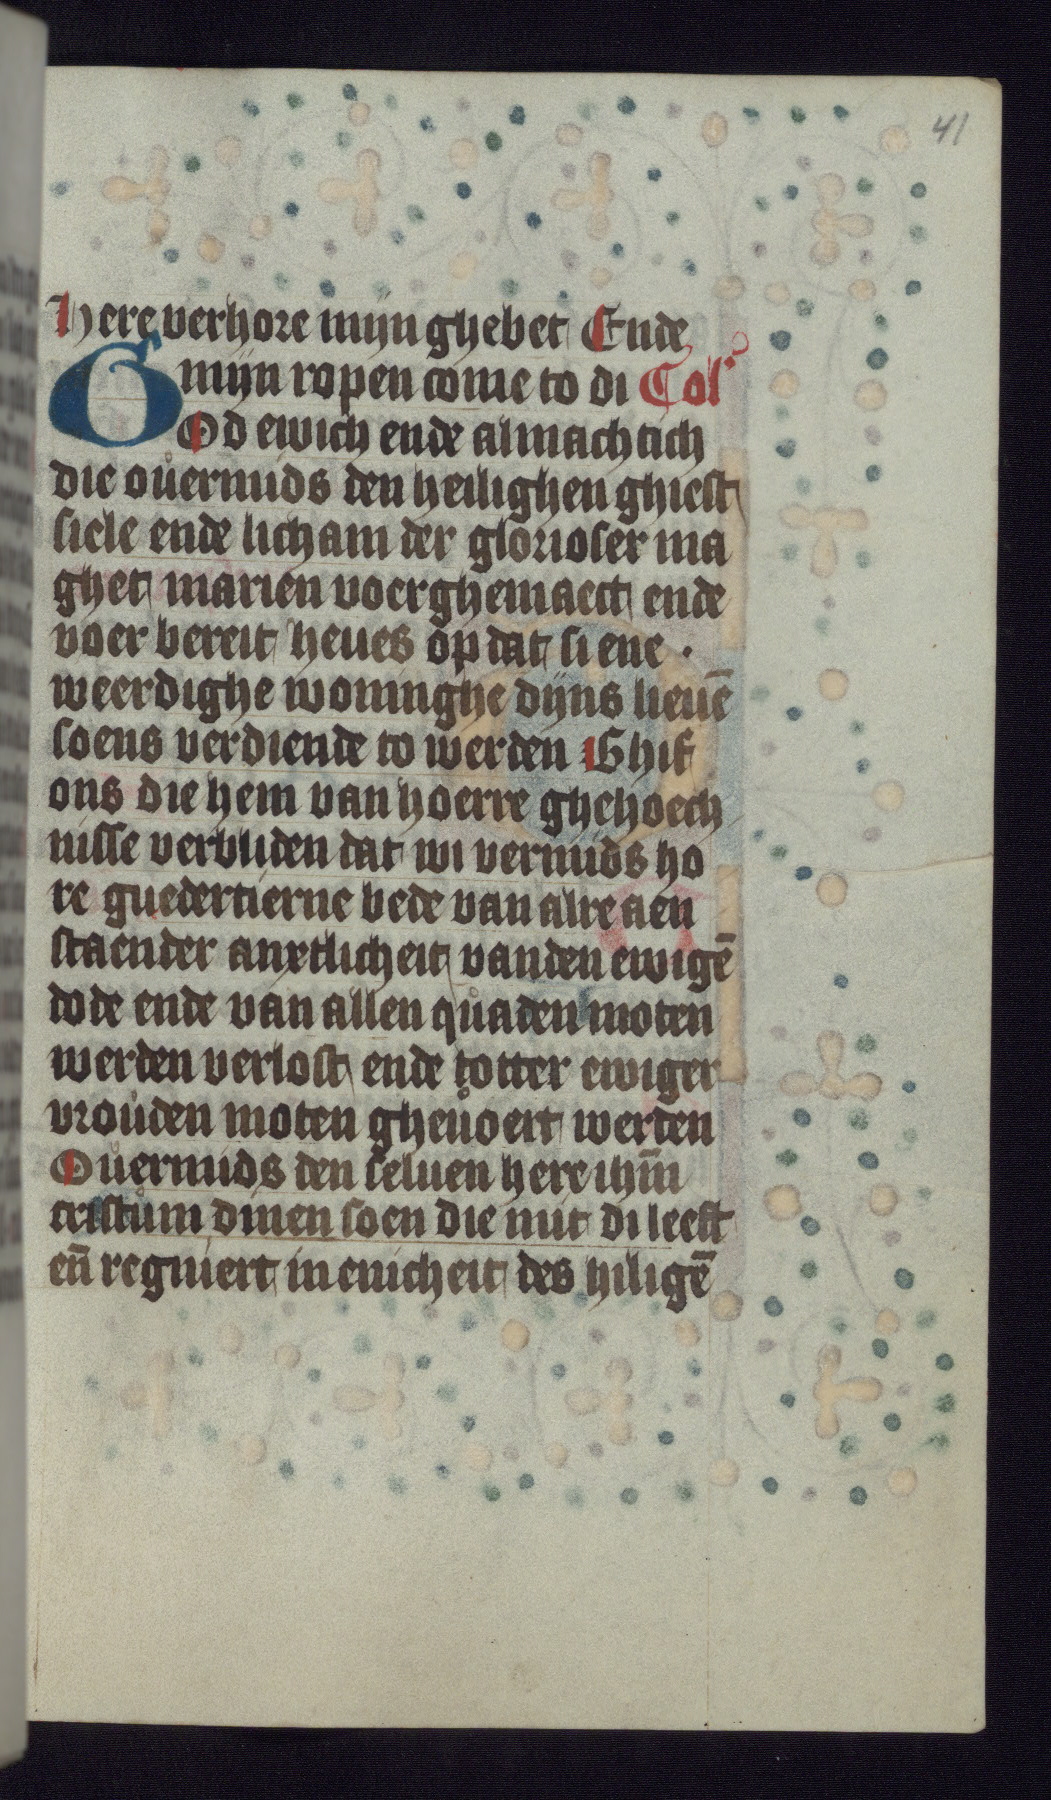 41
Here verhore mijn ghebet Ende
mijn ropen come to di Col'
GOd ewich ende almachtich
die ouermids den heilighen ghiest
siele ende licham der glorioser ma
ghet marien voerghemaect ende
voer bereit heues op dat si ene ·
weerdighe woninghe dijns lieuē
soens verdiende to werden Ghif
ons die hem van hoerre ghehoech
nisse verbliden dat wi vermids ho
re guedertierne bede van alre aen
staender anxtlicheit vanden ewigē
dode ende van allen quaden moten
werden verlost ende totter ewiger
vrouden moten gheuoert werden
Ouermids den seluen here ihm̄
cristum dinen soen die mit di leeft
en̄ regniert in enicheit des hiligē